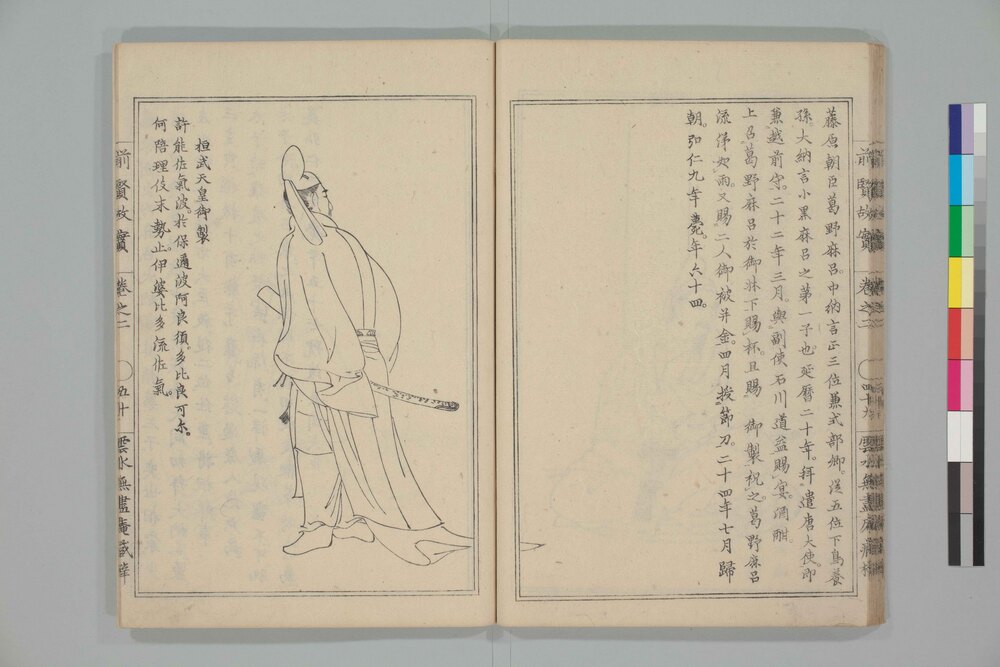 藤原朝臣葛野麻呂。中納言正三位兼式部卿。従五位下鳥養
孫大納言小黒麻呂之第一子也。延暦二十年。拝遣唐大使。即
兼越前守。二十二年三月。與副使石川道益賜宴。酒酣
上召葛野麻呂於御牀下賜杯。且賜 御製祝之。葛野麻呂
流涕如雨。又賜二人御被并金。四月授節刀。二十四年七月歸
朝。弘仁九年薨。年六十四。
前賢故實
巻之二
桓武天皇御製
許能佐氣波。於保邇波阿良須。多比良可尓。
何陪理伎末勢止。伊婆比多流佐氣。
前賢故實
巻之二
五十
雲水無盡庵蔵